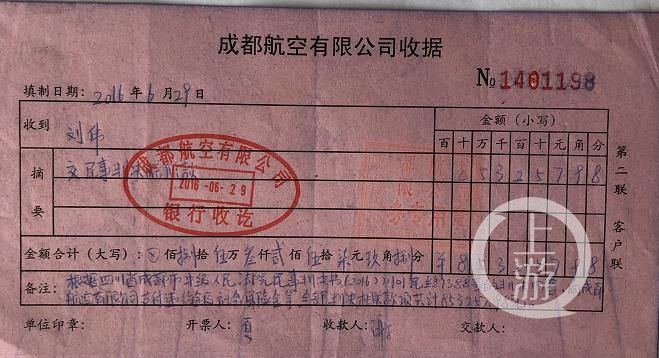 成都航空有限公司收据
№ 1401198
填制日期: 2016 年 6 月 29 日
收到 刘伟
金额(小写)
百 十 万 千 百 十 元 角 分
摘要
交 民事判决
8 5 3 2 5 7 9 8
成都航空有限公司
2016-06-29
银行收讫
第二联 客户联
金额合计(大写): 佰 捌拾 伍万 叁仟 贰佰 伍拾 柒元 玖角 捌分
¥ 8 5 3 2 5 7 9 8
备注: 根据四川省成都市中级人民法院民事判决书(2016)川01民终1388号
航空有限公司支付违约金 社会保险金等
上游
单位印章: 开票人: 收款人: 谢 交款人: